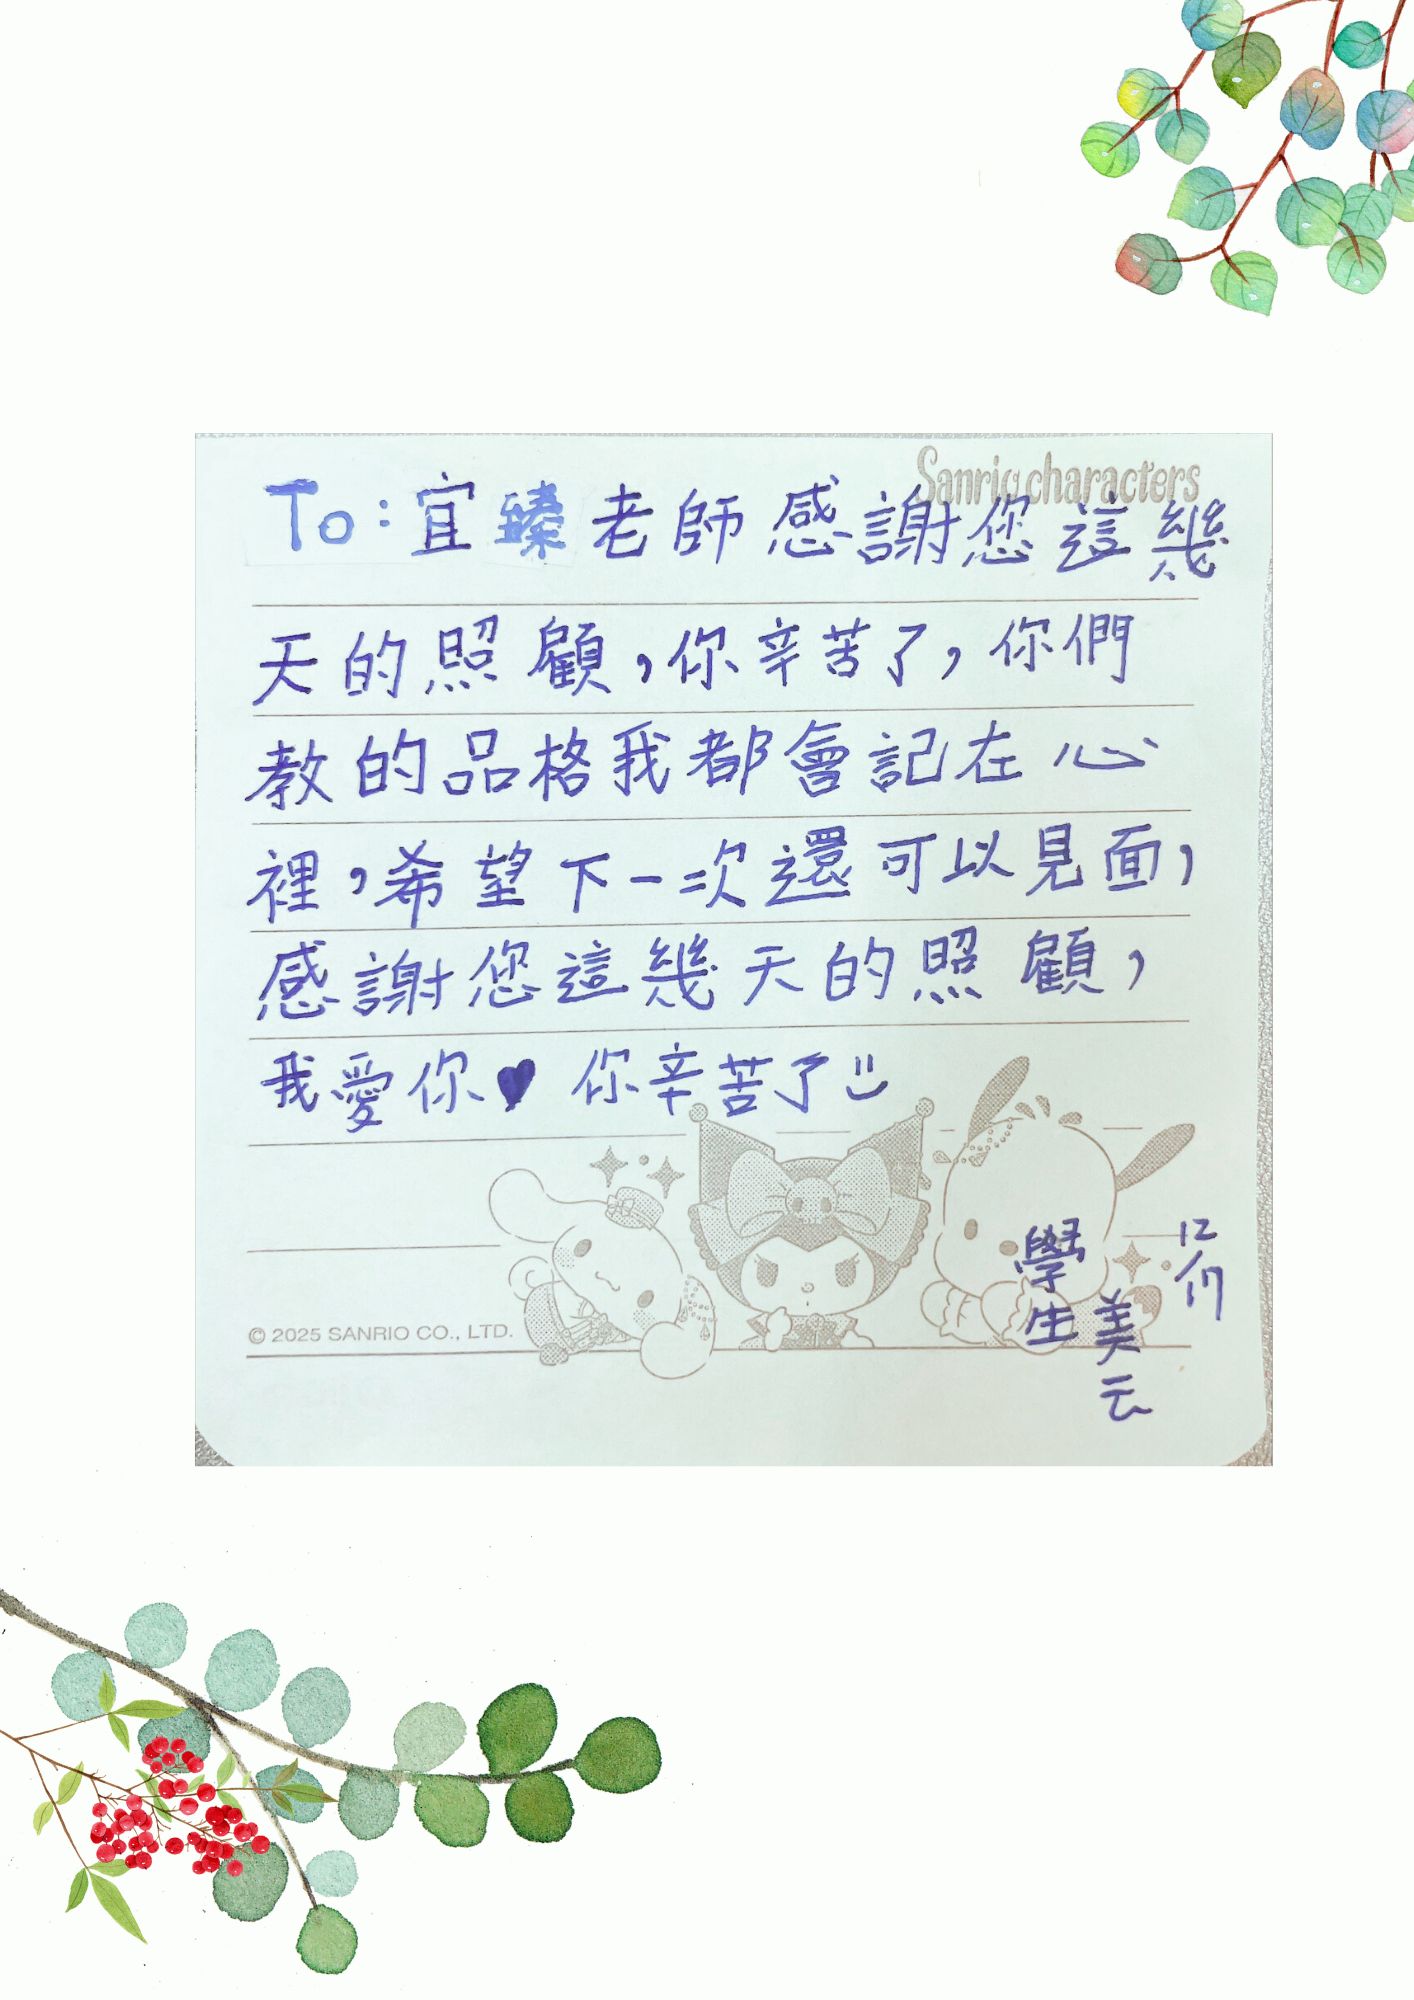 Sanrio characters
To:宜臻老師感謝您這幾
天的照顧,你辛苦了,你們
教的品格我都會記在心
裡,希望下一次還可以見面,
感謝您這幾天的照顧,
我愛你♥ 你辛苦了
學生
美云
© 2025 SANRIO CO., LTD.